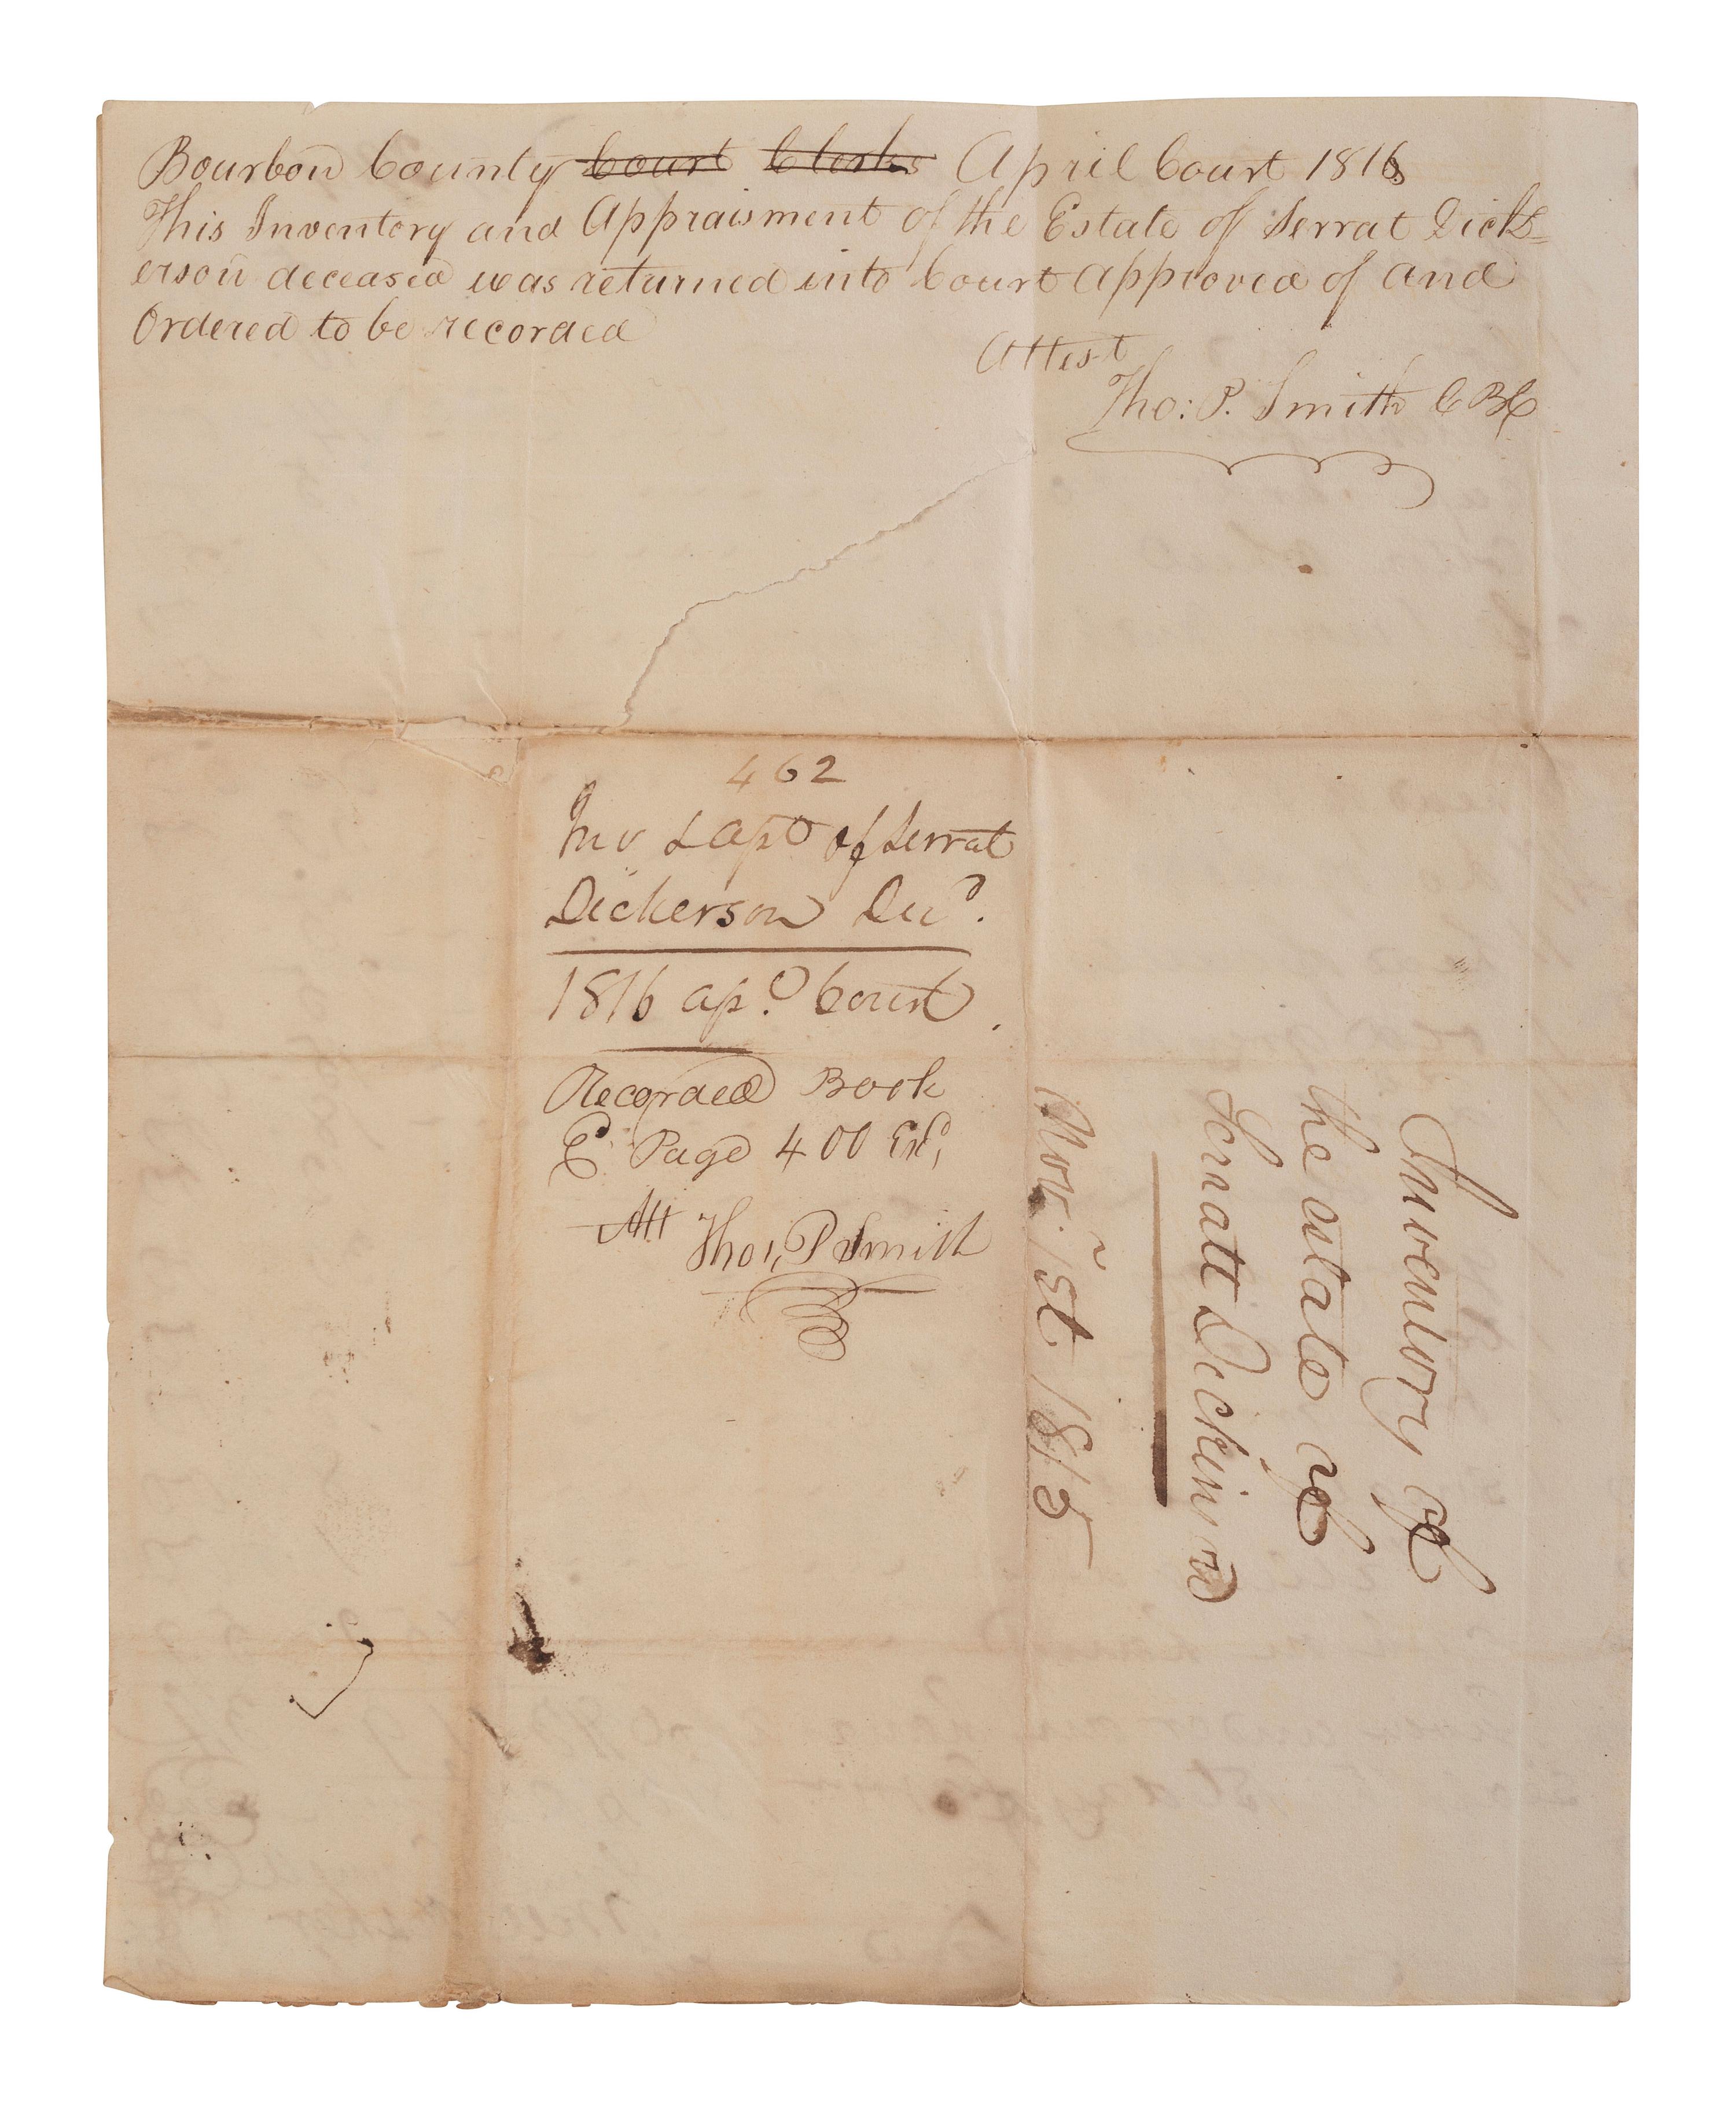 Bourbon County Court Clerks April Court 1816
This Inventory and Appraisment of the Estate of Serrat Dick=
erson deceased was returned into Court approved of and
Ordered to be recorded
Attest
Tho: P. Smith CBC
462
Inv & apt of Serrat
Dickerson Decd.
1816 ap. Court
Recorded Book
E Page 400 Exd
Att Thos, P Smith
Inventory of
the estate of
Serratt Dickinson
Nov. 1st 1815